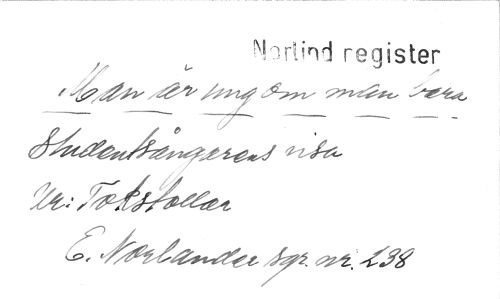 Norlind register
Man är ung om man bara
Studentsångarens visa
Ur: Tokstollar
E. Norlander sgr. nr. 238